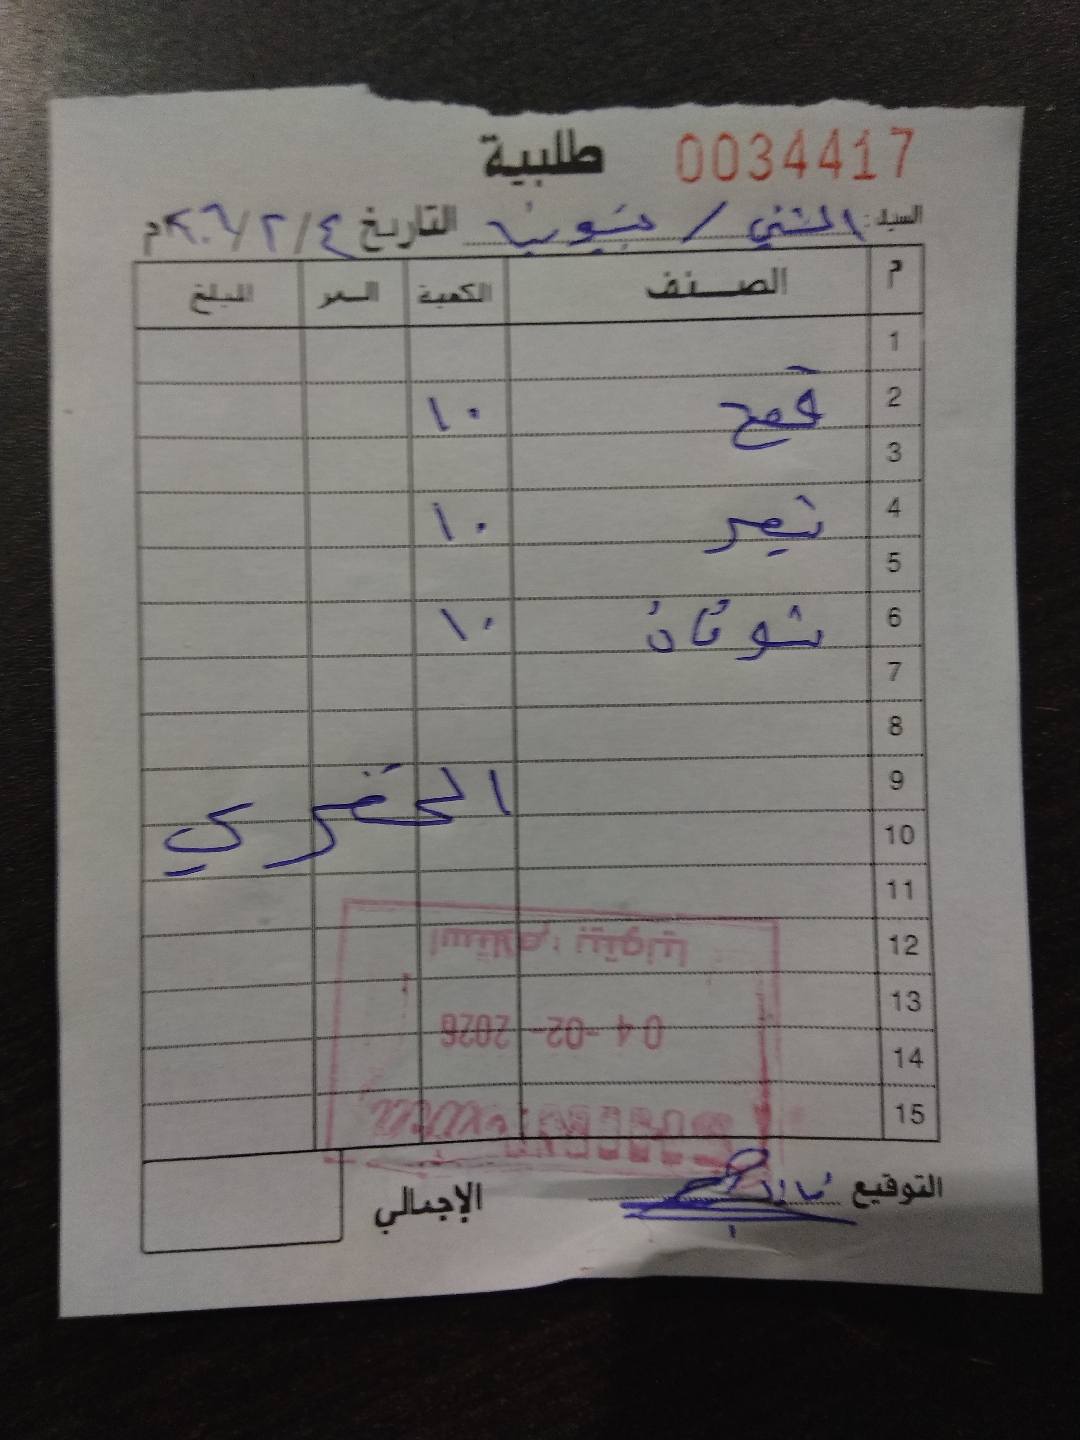 طلبية 0034417
السيد: الشني / بيتونيا التاريخ ٢٠٢٦/٢/٤م
م الصنف الكمية السعر المبلغ
1
2 قمح ١٠
3
4 شعير ١٠
5
6 شوفان ١٠
7
8
9
10 الجغبري
11
12
13
14
15
استلام: بيتونيا
04-02-2026
التوقيع
الإجمالي